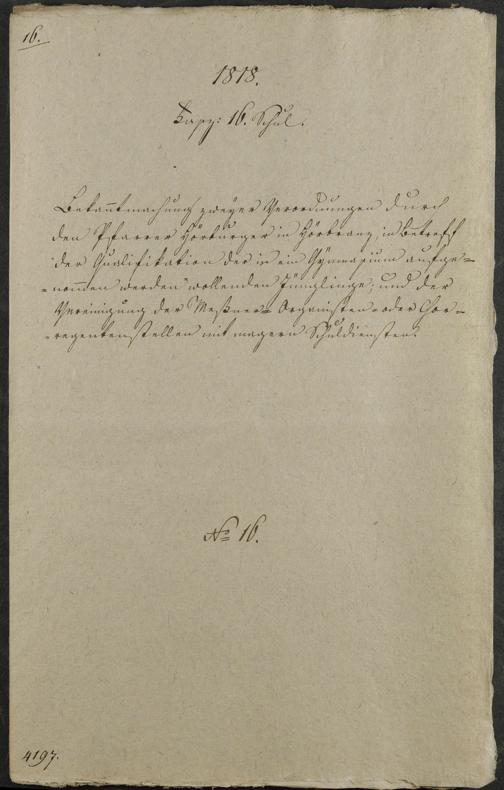 16.
1818.
Fasz: 16. Schul.
Bekanntmachung zweyer Verordnungen durch
den Pfarrer Hörburger in Hörbranz, in betreff
der Qualifikation der in ein Gymnasium aufge=
=nommen werden wollenden Jünglinge; und der
Vereinigung der Meßner= Organisten= oder Chor=
=regentenstellen mit magern Schuldiensten.
No 16.
4197.